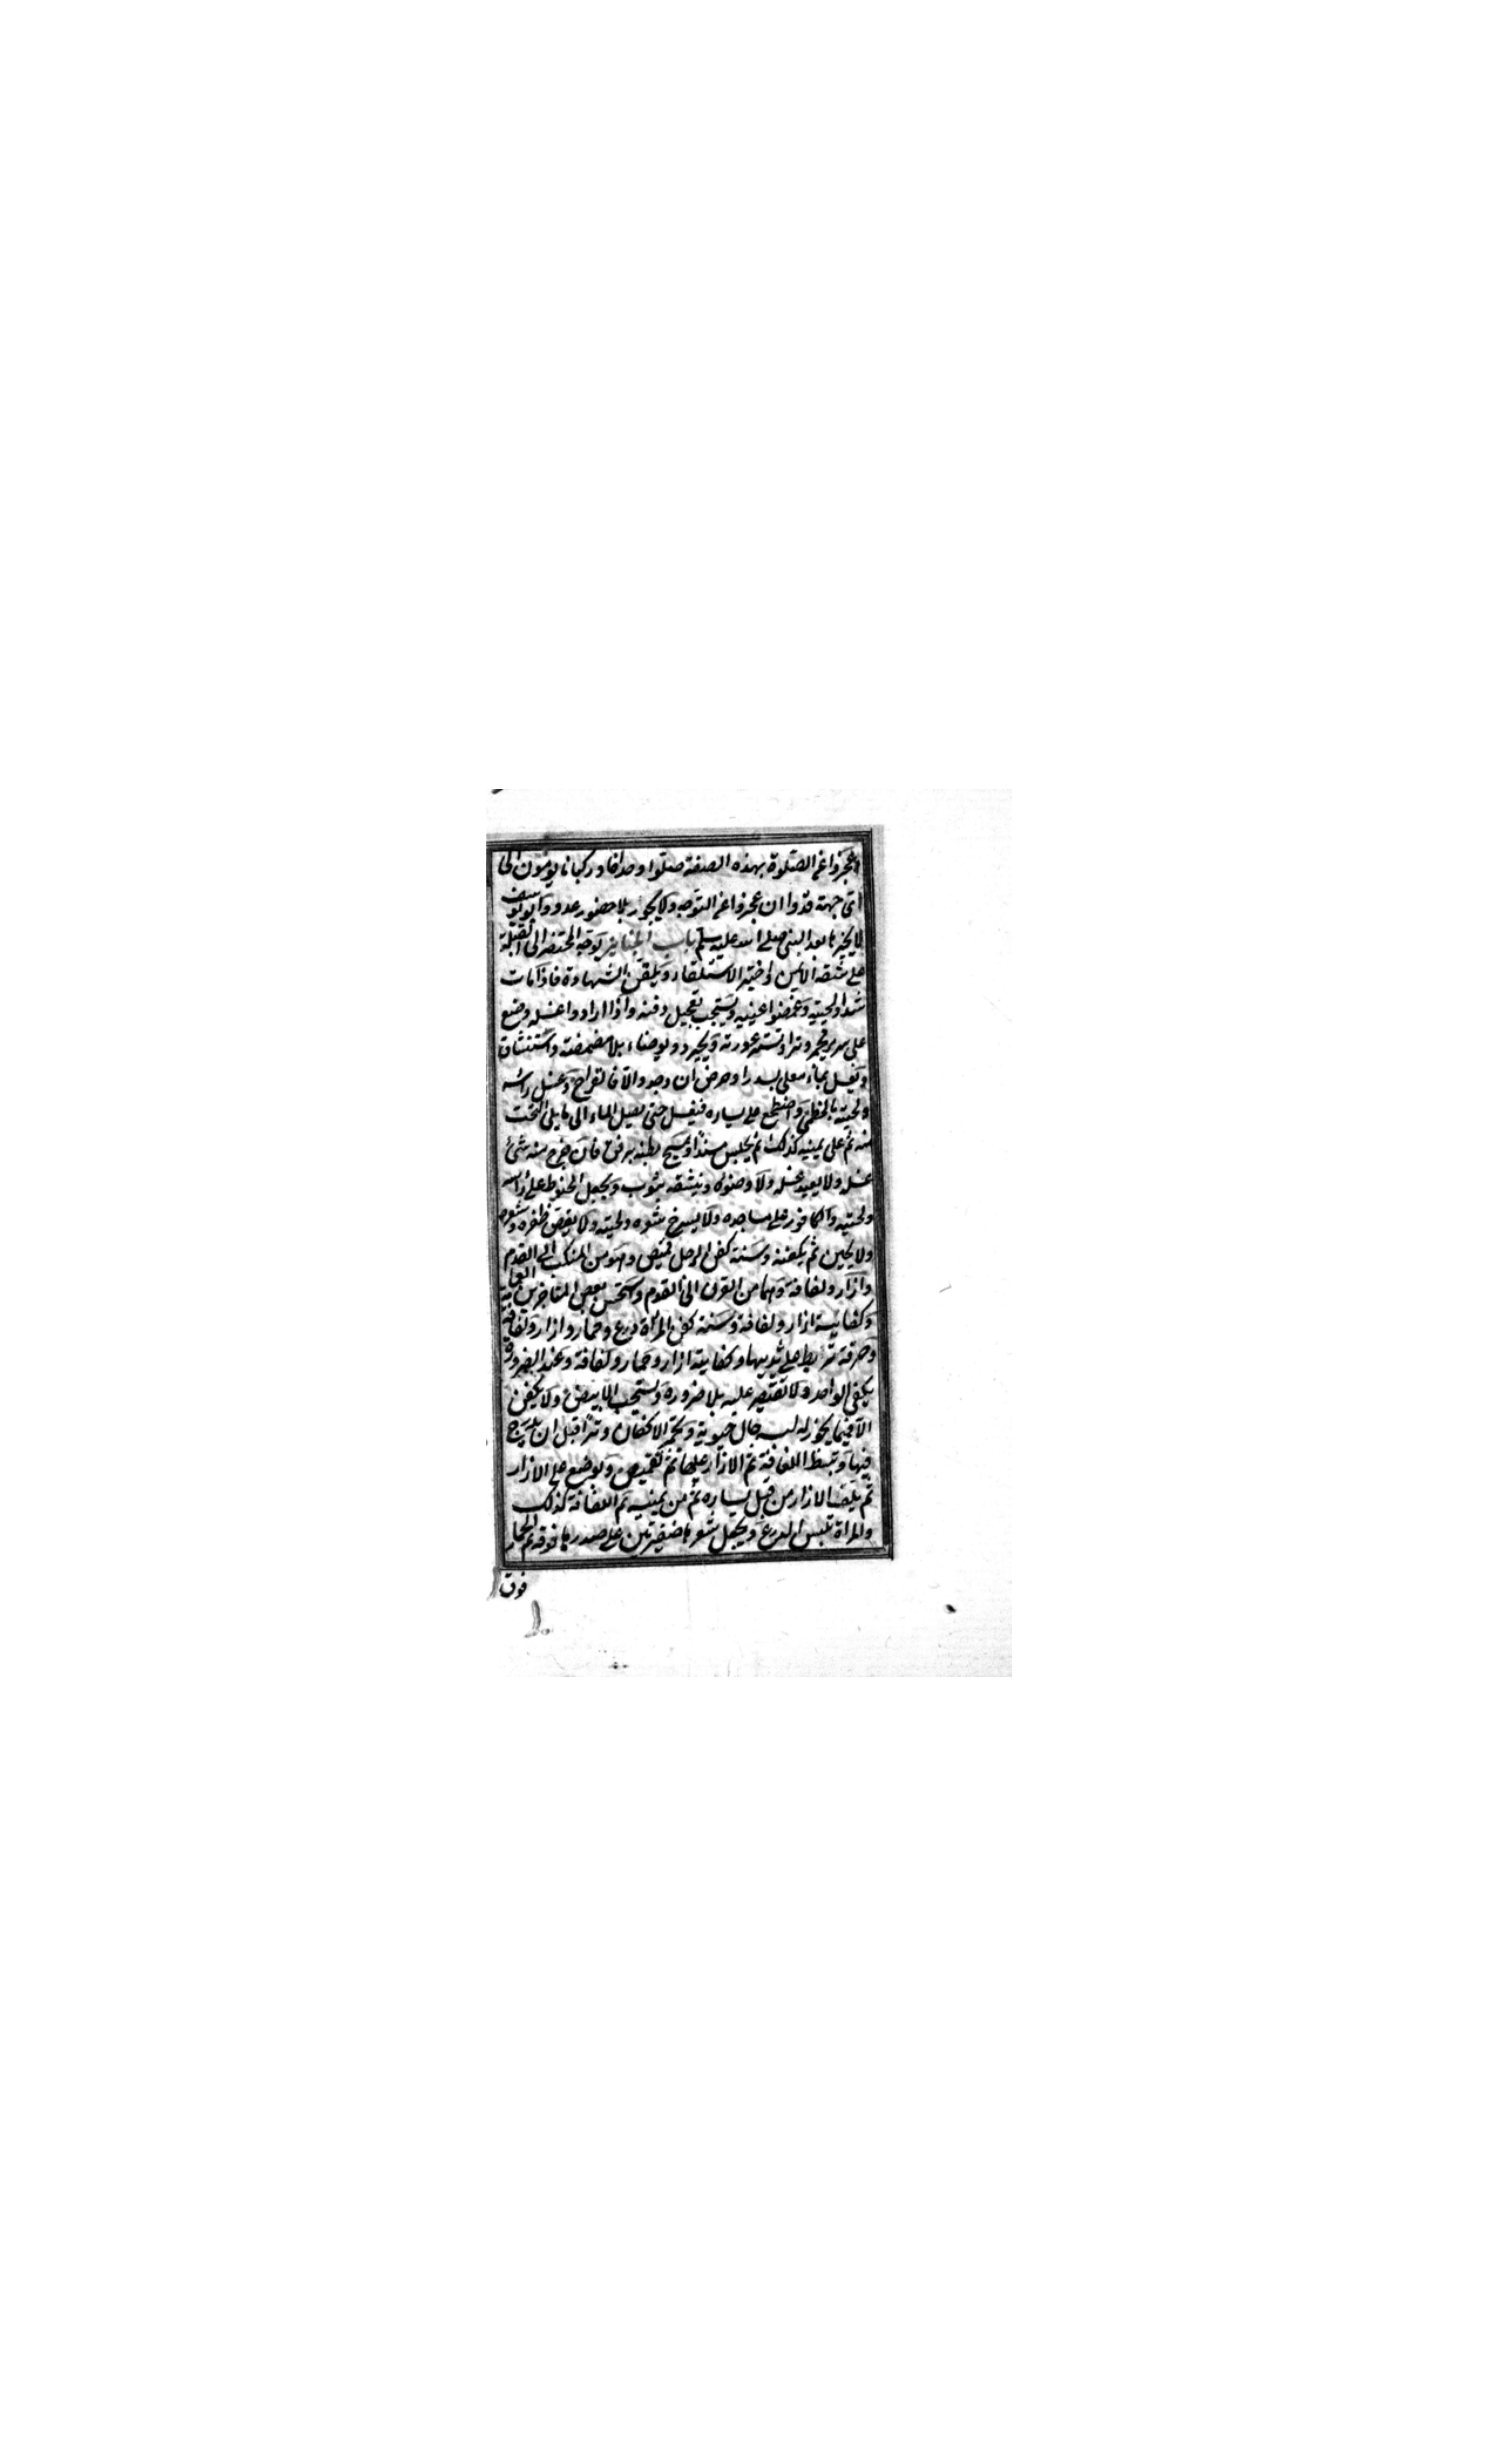 عجزوا عن الصلوة بهذه الصفة صلوا وحدانا وركبانا يومئون الى
اى جهة قدروا ان عجزوا عن التوجه ولا يجوز بلا حضور عدو وابو يوسف
لا يجيزها بعد النبى صلى الله عليه وسلم باب الجنايز يوجه المحتضر الى القبلة
على شقه الايمن واختير الاستلقاء ويلقن الشهادة فاذا مات
شدوا لحييه وغمضوا عينيه ويستحب تعجيل دفنه واذا ارادوا غسله وضع
على سرير مجمر وترا وتستر عورته ويجرد ويوضاء بلا مضمضة واستنشاق
ويغسل بماء مغلى بسدر او حرض ان وجد والا فالقراح وغسل راسه
ولحيته بالخطمى واضطجع على يساره فيغسل حتى يصل الماء الى ما يلى التخت
منه ثم على يمينه كذلك ثم يجلس مسندا ويمسح بطنه برفق فان خرج منه شئ
غسله ولا يعيد غسله ولا وضوئه وينشفه بثوب ويجعل الحنوط على راسه
ولحيته والكافور على مساجده ولا يسرح شعره ولحيته ولا يقص ظفره وشعره
ولا يختن ثم يكفنه وسنة كفن الرجل قميص وهو من المنكب الى القدم
وازار ولفافة وهما من القرن الى القدم واستحسن بعض المتاخرين العمامة
وكفايته ازار ولفافة وسنة كفن المراة درع وخمار وازار ولفافة
وخرقة تربط على ثدييها وكفايته ازار وخمار ولفافة وعند الضرورة
يكفى الواحد ولا يقتصر عليه بلا ضرورة ويستحب الابيض ولا يكفن
الا فيما يجوز له لبسه حال حيوته وتجمر الاكفان وترا قبل ان يدرج
فيها وتبسط اللفافة ثم الازار عليها ثم يقمص ويوضع على الازار
ثم يلف الازار من قبل يساره ثم من يمينه ثم اللفافة كذلك
والمراة تلبس الدرع ويجعل شعرها ضفيرتين على صدرها فوقه ثم الخمار
فوق